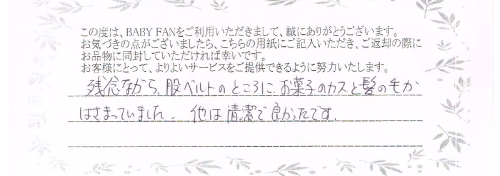 この度は、BABY FANをご利用いただきまして、誠にありがとうございます。
お気づきの点がございましたら、こちらの用紙にご記入いただき、ご返却の際に
お品物に同封していただければ幸いです。
お客様にとって、よりよいサービスをご提供できるように努力いたします。
残念ながら、股ベルトのところに、お菓子のカスと髪の毛が
はさまっていました。他は清潔で良かったです。